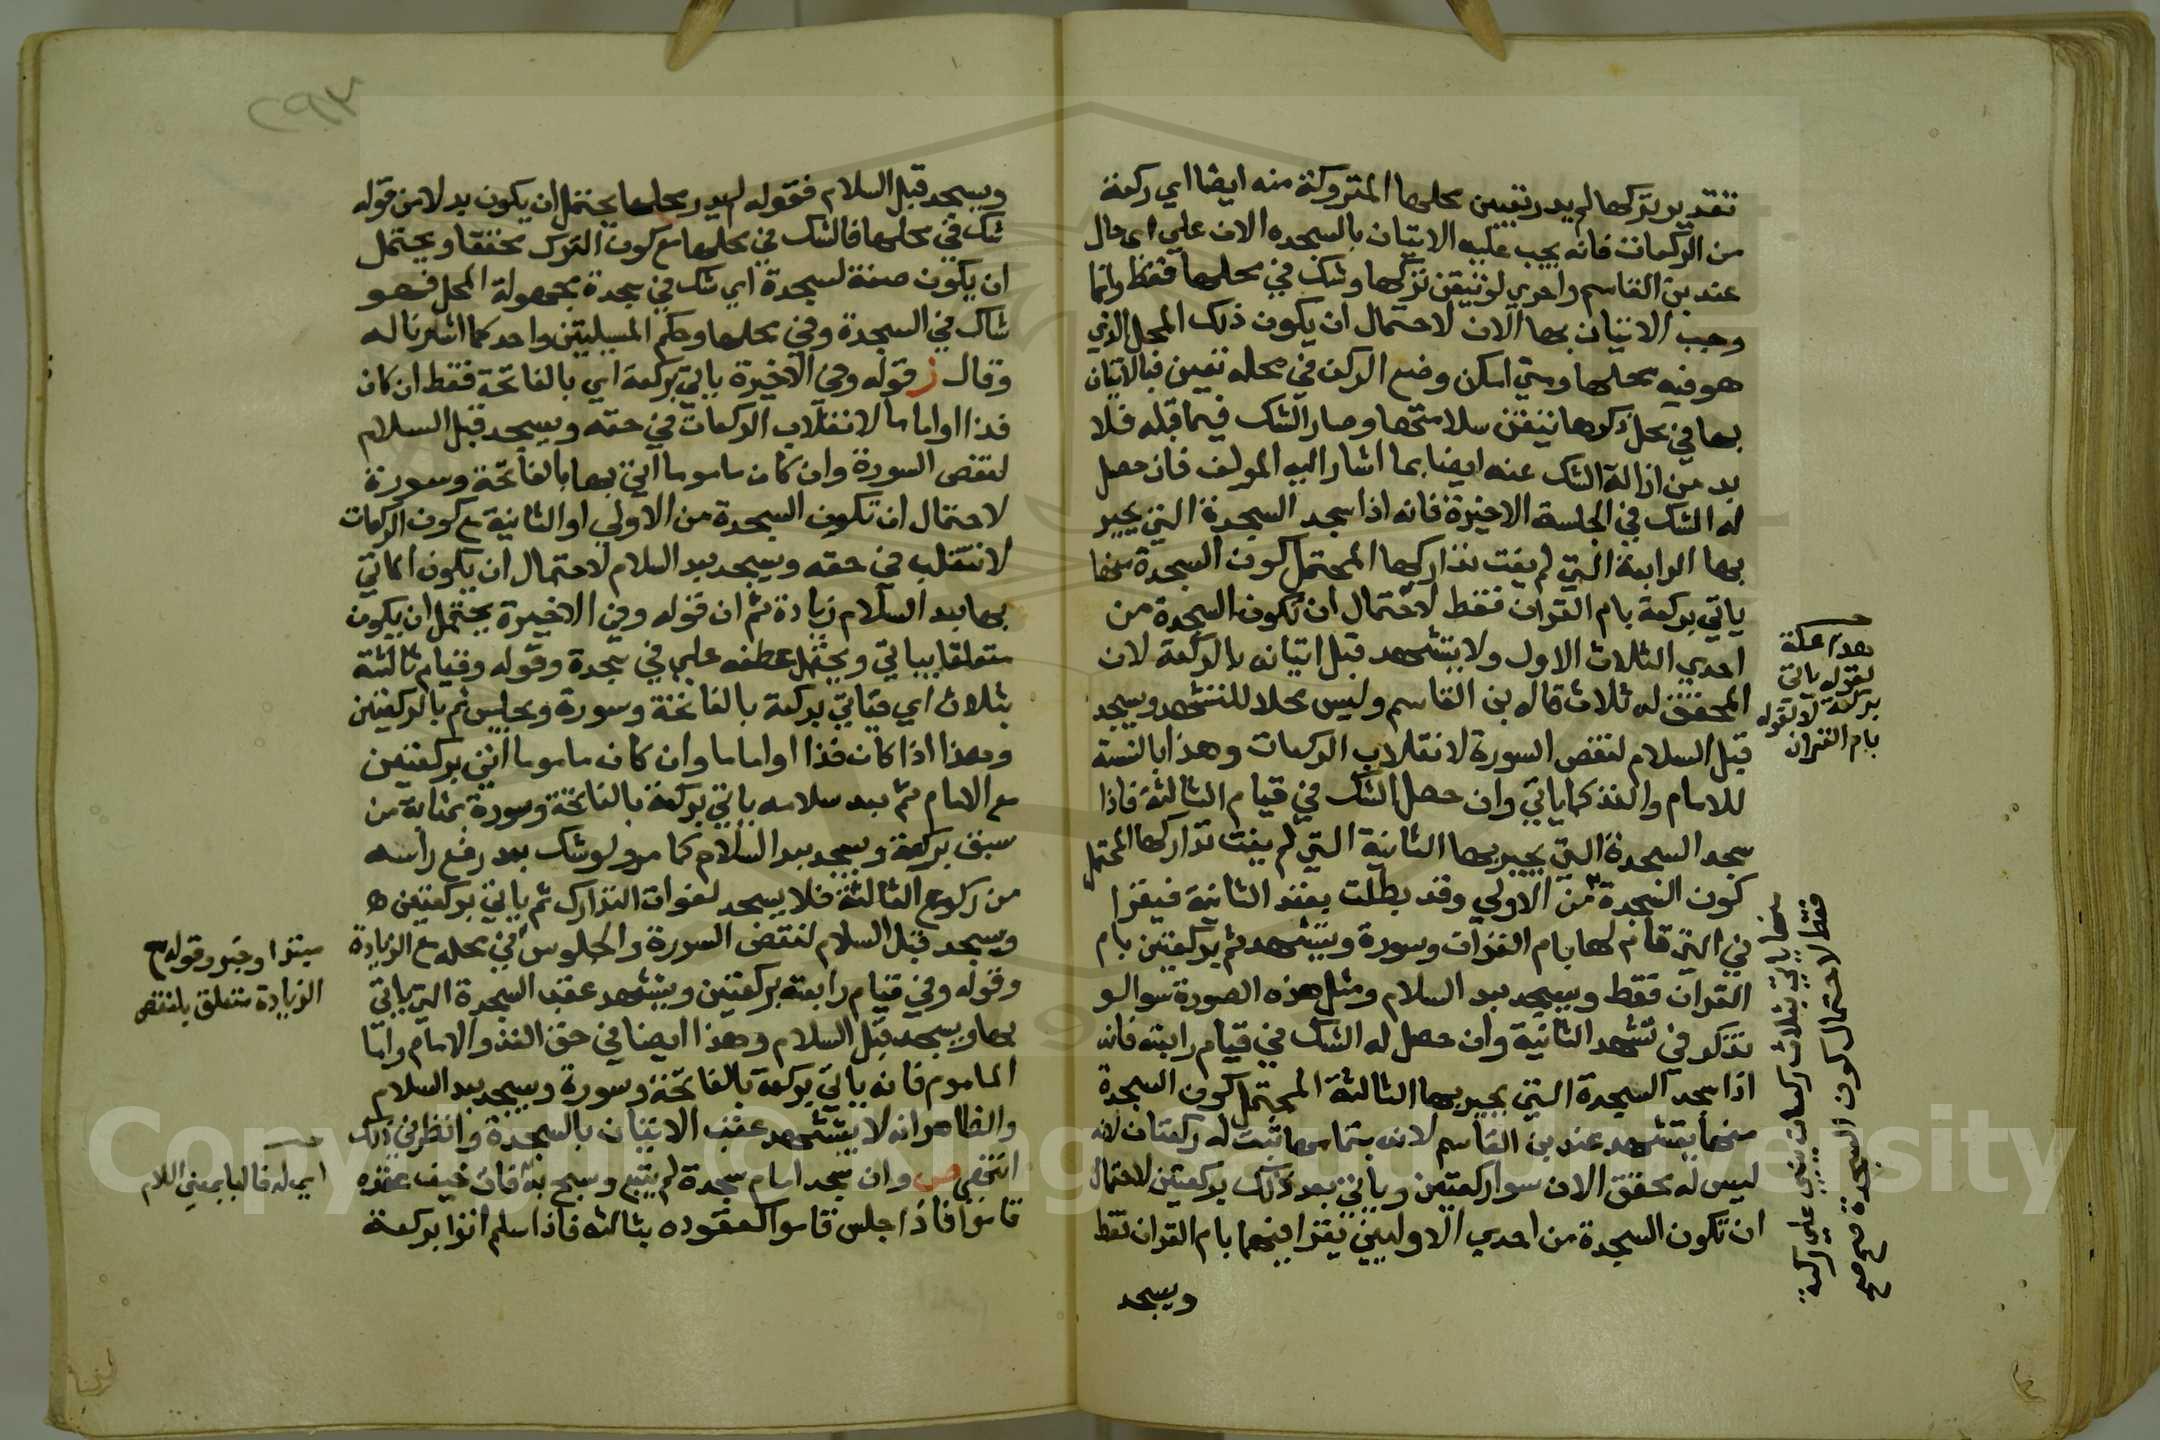 تقدير تركها لم يدر تعيين محلها المتروكة منه ايضا اي ركعة
من الركعات فانه يجب عليه الاتيان بالسجدة الان علي اي حال
عند بن القاسم واحري لو تيقن تركها وشك في محلها فقط وانما
وجب الاتيان بها الان لاحتمال ان يكون ذلك المحل الذي
هو فيه محلها ومتي امكن وضع الركن في محله تعين فبالاتيان
بها في محل ذكرها تيقن سلامتها وصار الشك فيما قبله فلا
بد من ازالة الشك عنه ايضا بما اشار اليه المولف فان حصل
له الشك في الجلسة الاخيرة فانه اذا سجد السجدة التي يجبر
بها الرابعة التي لم يفت تداركها المحتمل كون السجدة منها
ياتي بركعة بام القران فقط لاحتمال ان تكون السجدة من
احدي الثلاث الاول ولا يتشهد قبل اتيانه بالركعة لان
المحقق له ثلاث قاله بن القاسم وليس محلا للتشهد ويسجد
قبل السلام لنقص السورة لانقلاب الركعات وهذا بالنسبة
للامام والفذ كما ياتي وان حصل الشك في قيام الثالثة فاذا
سجد السجدة التي يجبر بها الثانية التي لم يفت تداركها المحتمل
كون السجدة من الاولي وقد بطلت بعقد الثانية فيقرا
في التي قام لها بام القران وسورة ويتشهد ثم بركعتين بام
القران فقط ويسجد بعد السلام ومثل هذه الصورة سوا لو
تذكر في تشهد الثانية وان حصل له الشك في قيام رابعة فانه
اذا سجد السجدة التي يجبر بها الثالثة المحتمل كون السجدة
منها يتشهد عند بن القاسم لانه بتمامها تبت له ركعتان لانه
ليس له محقق الان سوا ركعتين وياتي بعد ذلك بركعتين لاحتمال
ان تكون السجدة من احدي الاوليين يقرا فيهما بام القران فقط
ويسجد
هذا علة
لقوله ياتي
بركعة لا لقوله
بام القران
فقط لاحتمال كون السجدة
ويسجد قبل السلام فقوله لم يدر محلها يحتمل ان يكون بدلا من قوله
شك في محلها فالشك في محلها مع كون الترك محققا ويحتمل
ان يكون صفة لسجدة اي شك في سجدة مجهولة المحل فهو
شاك في السجدة وفي محلها وحكم المسيلتين واحد كما اشرنا له
وقال ز قوله وفي الاخيرة ياتي بركعة اي بالفاتحة فقط ان كان
فذا او اماما لانقلاب الركعات في حقه ويسجد قبل السلام
لنقص السورة وان كان ماموما اتي بها بالفاتحة وسورة
لاحتمال ان تكون السجدة من الاولي او الثانية مع كون الركعات
لا تنقلب في حقه ويسجد بعد السلام لاحتمال ان يكون الماتي
بها بعد السلام زيادة ثم ان قوله وفي الاخيرة يحتمل ان يكون
متعلقا بياتي ويحتمل عطفه علي في سجدة وقوله وقيام ثالثة
بثلاث اي فياتي بركعة بالفاتحة وسورة ويجلس ثم بالركعتين
وهذا اذا كان فذا او اماما وان كان ماموما اتي بركعتين
مع الامام ثم بعد سلامه ياتي بركعة بالفاتحة وسورة بمثابة من
سبق بركعة ويسجد بعد السلام كما مر ولو شك بعد رفع راسه
من ركوع الثالثة فلا يسجد لفوات التدارك ثم ياتي بركعتين ه
وسجد قبل السلام لنقص السورة والجلوس في محله مع الزيادة
وقوله وفي قيام رابعته بركعتين ويتشهد عقب السجدة التي ياتي
بها ويسجد قبل السلام وهذا ايضا في حق الفذ والامام واما
الماموم فانه ياتي بركعة بالفاتحة وسورة ويسجد بعد السلام
والظاهر انه لا يتشهد عقب الاتيان بالسجدة وانظر في ذلك
انتهي ص وان سجد امام سجدة لم يتبع وسبح به فان خيف عقده
قاموا فاذا جلس قاموا كقعوده بثالثة فاذا سلم اتوا بركعة
وقوله مع
الزيادة متعلق بلنقص
اي له فالبا بمعني اللام